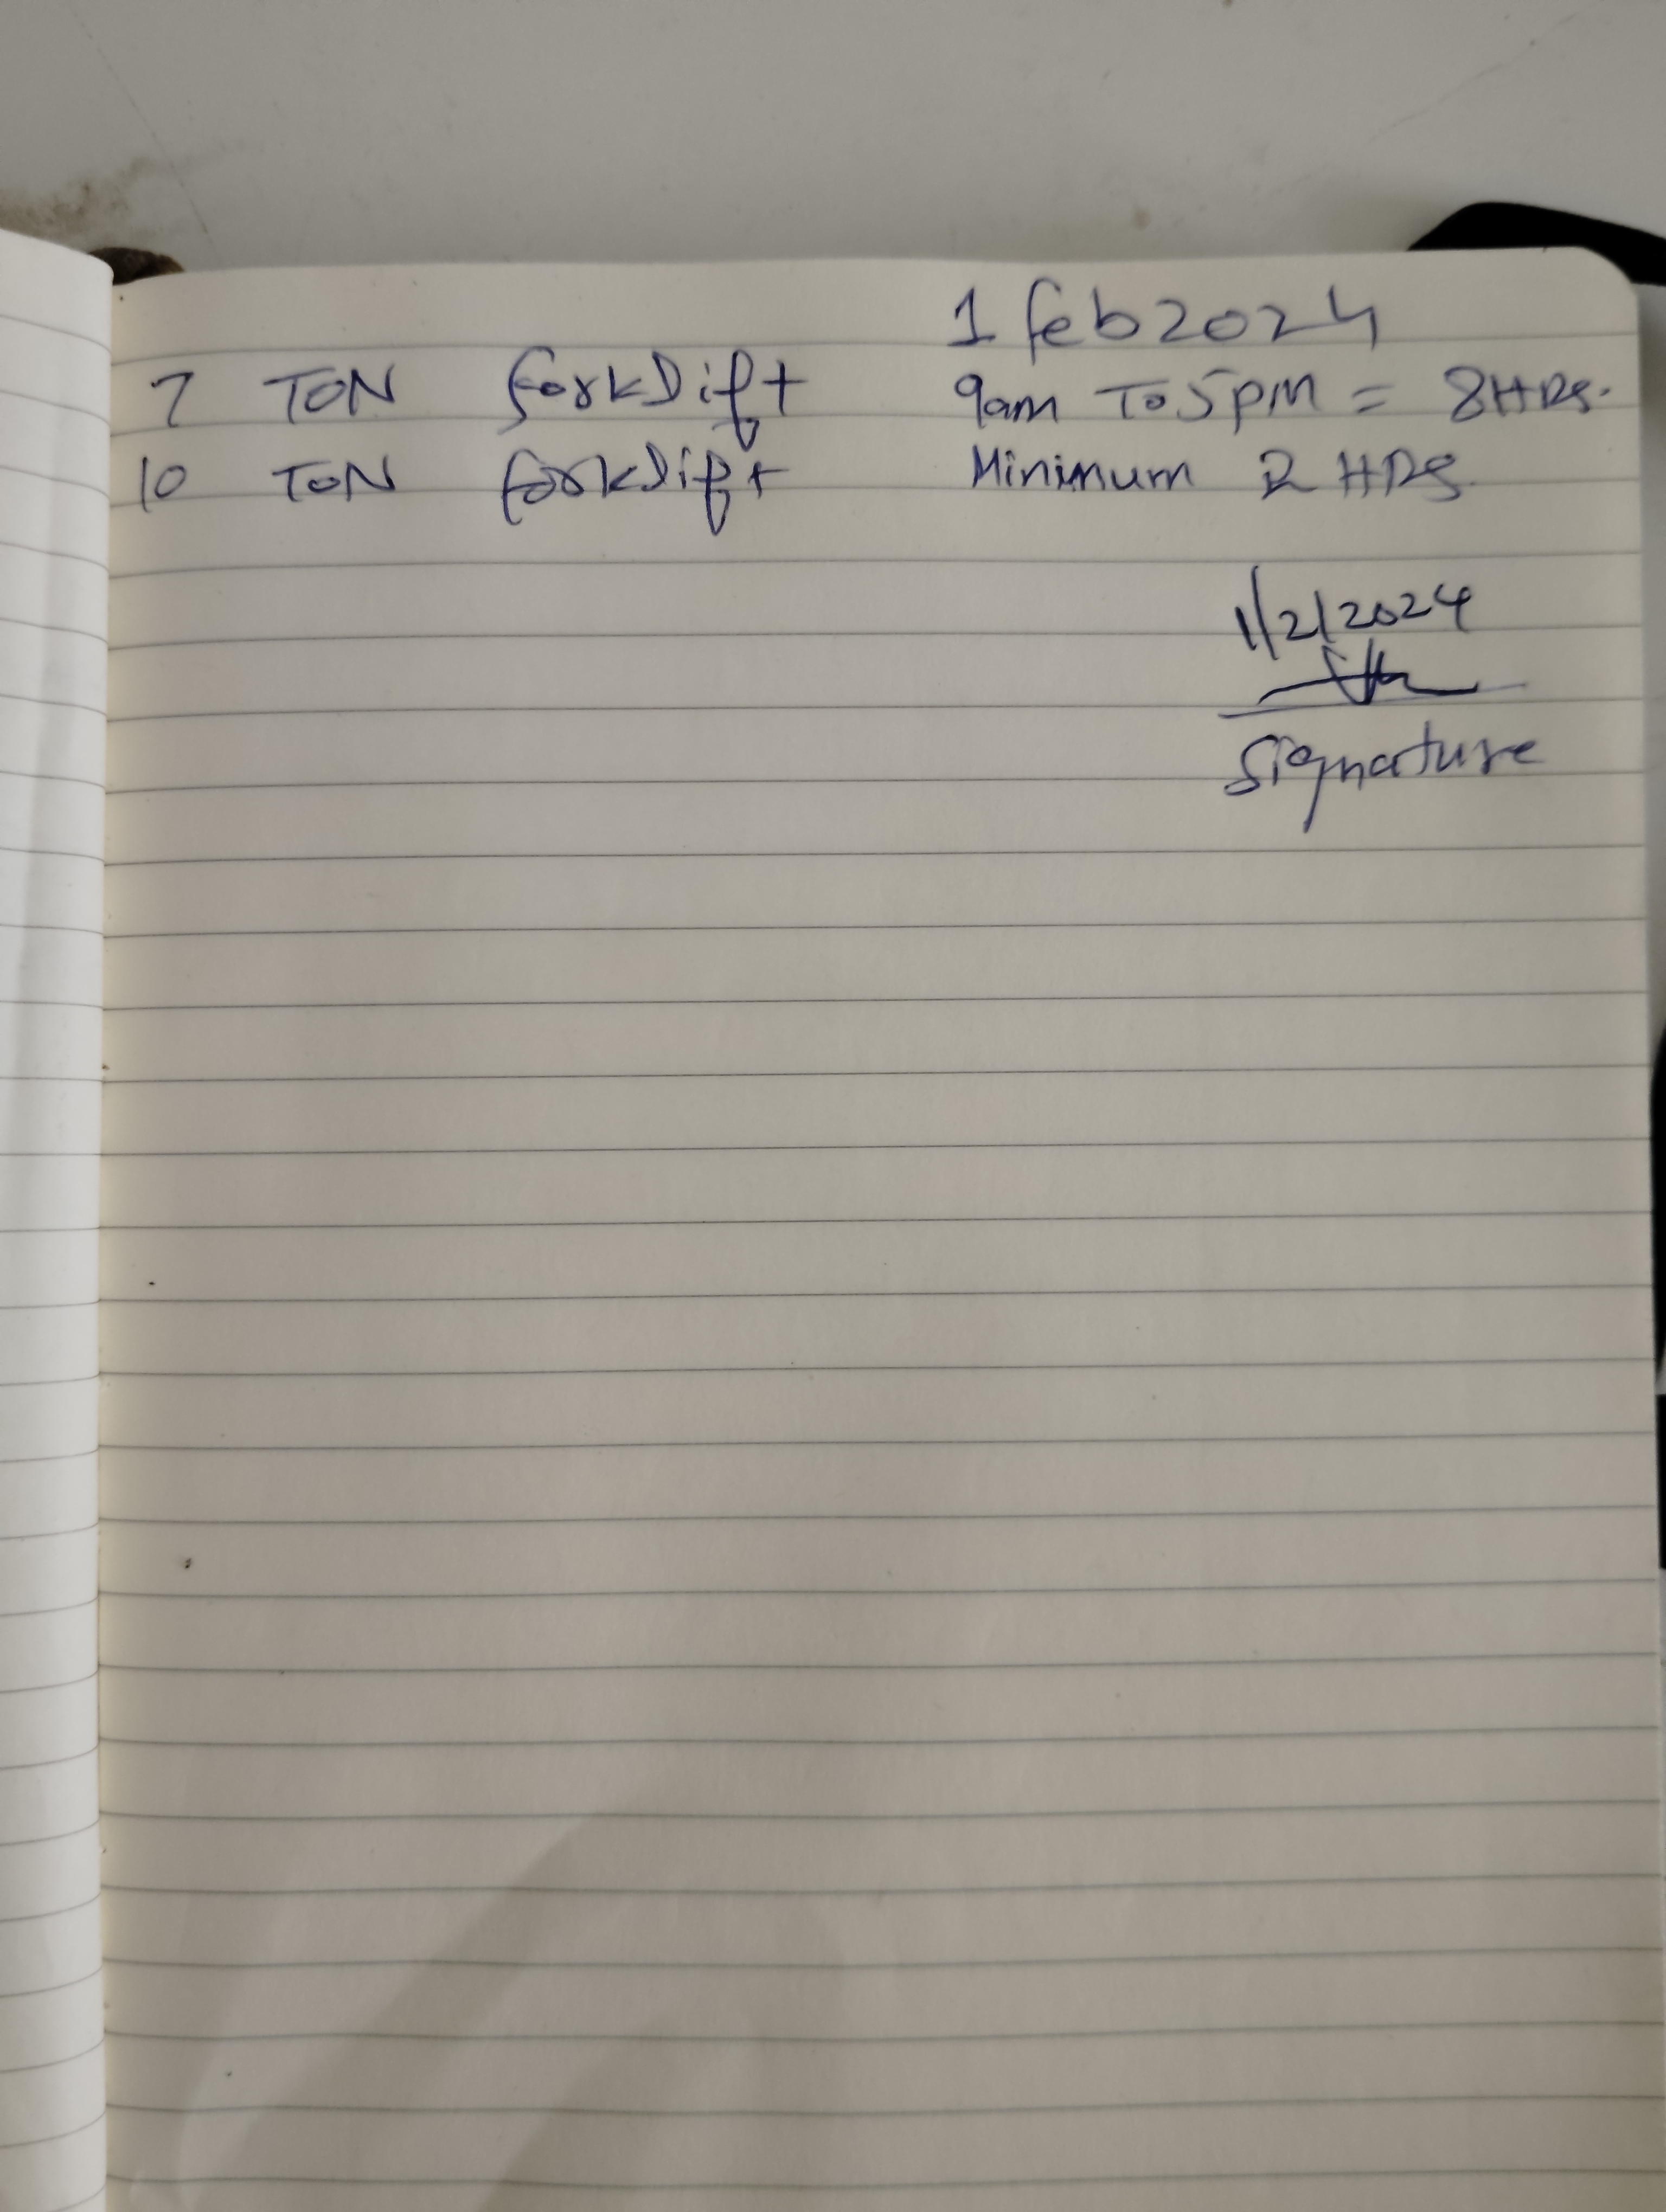 1 feb 2024
7 TON forklift 9am To 5pm = 8HRS.
10 TON forklift Minimum 2 HRS.
1/2/2024
Signature